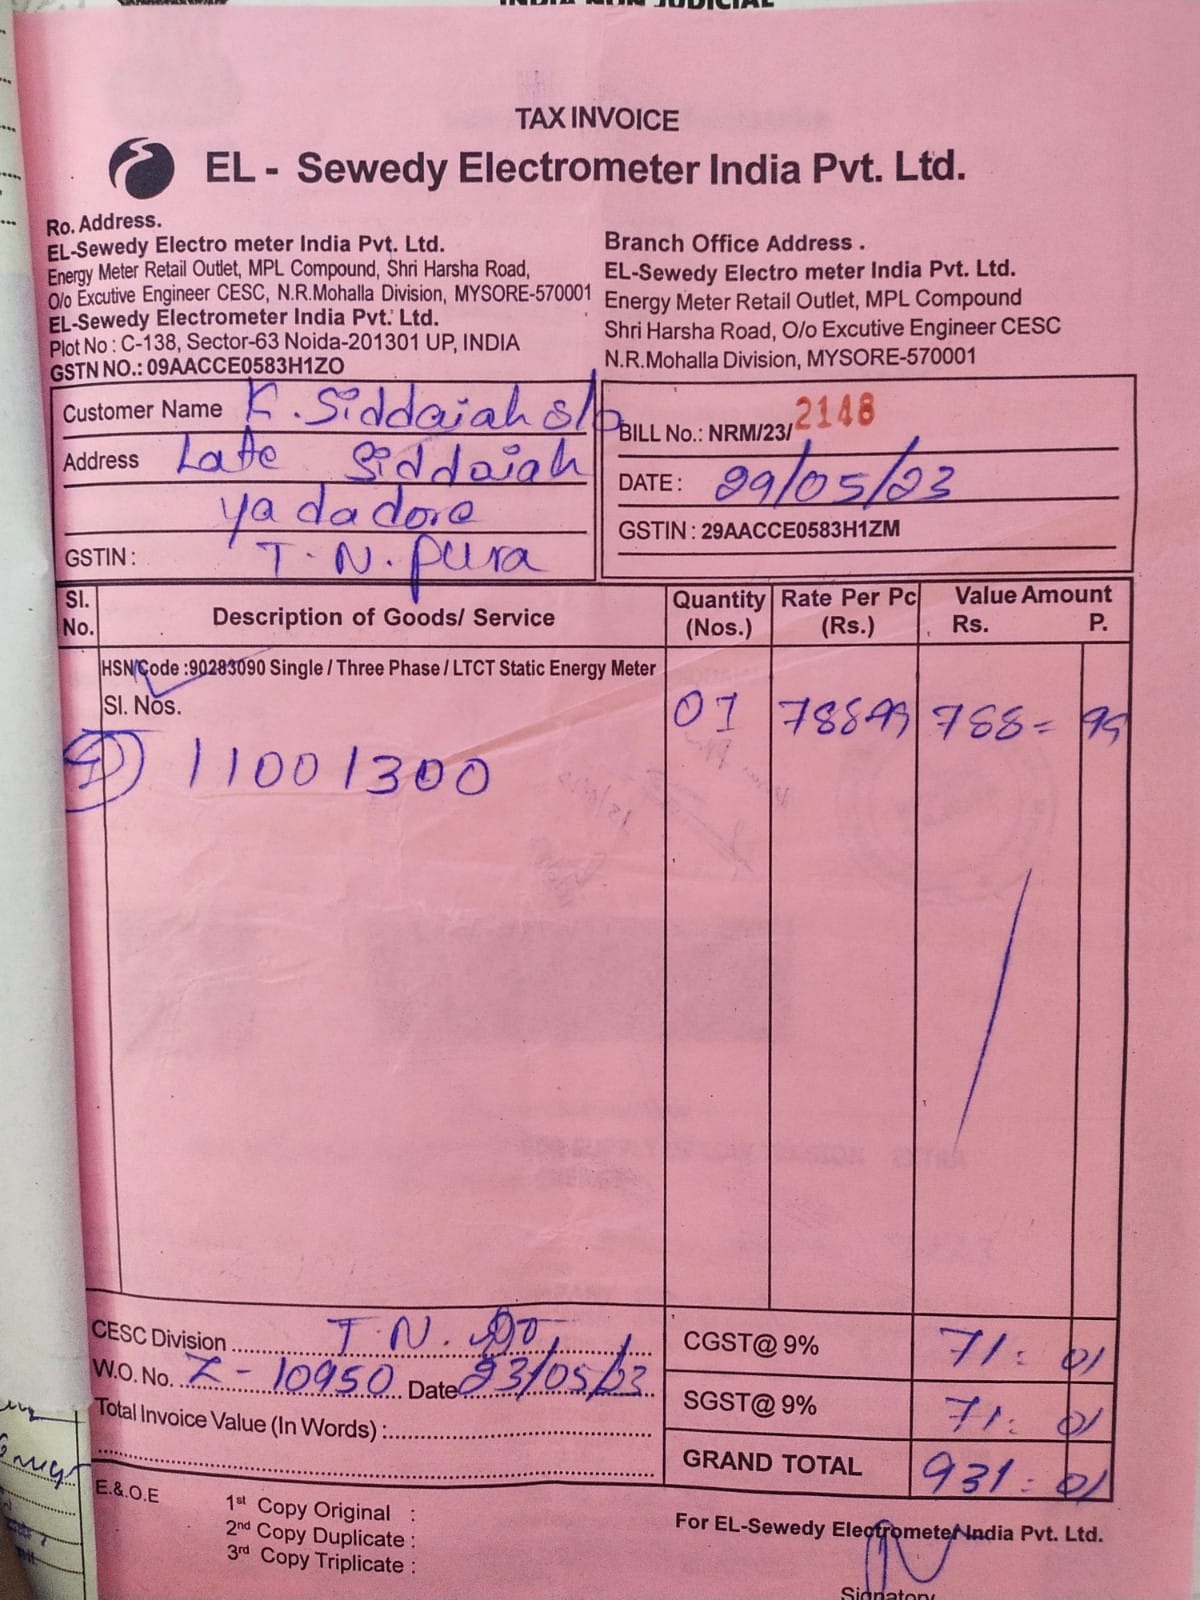 TAX INVOICE
EL - Sewedy Electrometer India Pvt. Ltd.
Ro. Address.
EL-Sewedy Electro meter India Pvt. Ltd.
Energy Meter Retail Outlet, MPL Compound, Shri Harsha Road,
O/o Excutive Engineer CESC, N.R.Mohalla Division, MYSORE-570001
EL-Sewedy Electrometer India Pvt. Ltd.
Plot No : C-138, Sector-63 Noida-201301 UP, INDIA
GSTN NO.: 09AACCE0583H1ZO
Branch Office Address .
EL-Sewedy Electro meter India Pvt. Ltd.
Energy Meter Retail Outlet, MPL Compound
Shri Harsha Road, O/o Excutive Engineer CESC
N.R.Mohalla Division, MYSORE-570001
Customer Name K. Siddaiah s/o
Address Late Siddaiah
yadadore
GSTIN : T. N. pura
BILL No.: NRM/23/ 2148
DATE : 29/05/23
GSTIN : 29AACCE0583H1ZM
Sl. No. Description of Goods/ Service Quantity (Nos.) Rate Per Pc (Rs.) Value Amount Rs. P.
HSN Code :90283090 Single / Three Phase / LTCT Static Energy Meter
Sl. Nos.
01 78899 788= 99
1 11001300
CESC Division T. N.
W.O. No. Z - 10950 Date 23/05/23
Total Invoice Value (In Words) :
CGST@ 9% 71: 01
SGST@ 9% 71: 01
GRAND TOTAL 931: 01
E.&.O.E
1st Copy Original :
2nd Copy Duplicate :
3rd Copy Triplicate :
For EL-Sewedy Electrometer India Pvt. Ltd.
Signatory